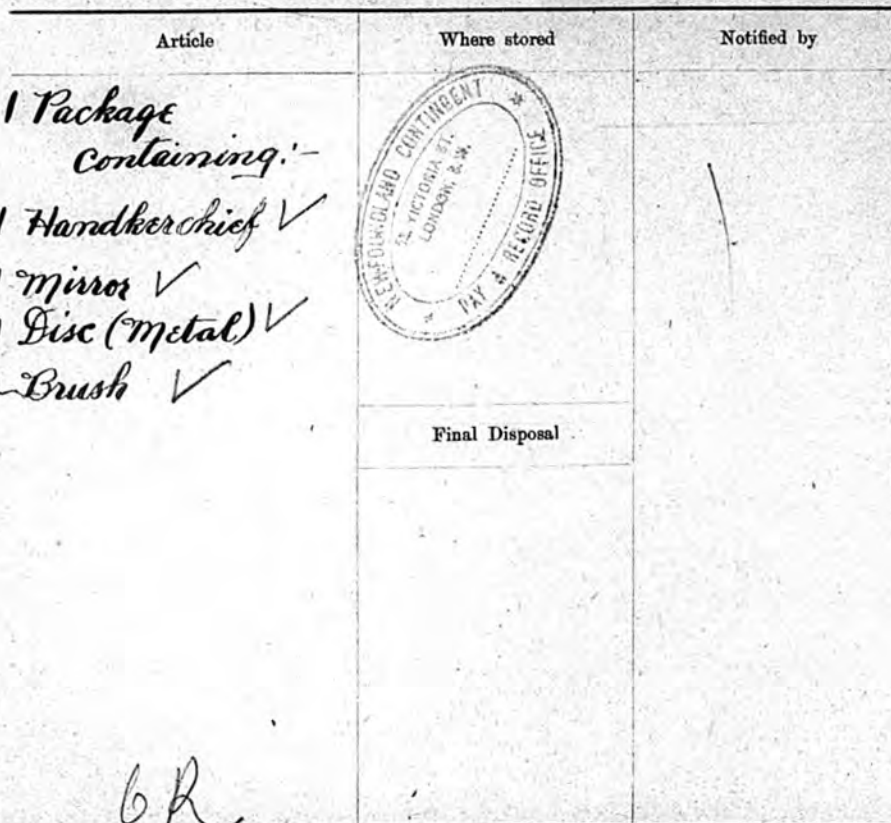 Article
Where stored
Notified by
1 Package
containing:-
1 Handkerchief ✓
1 Mirror ✓
1 Disc (Metal) ✓
Brush ✓
NEWFOUNDLAND CONTINGENT
PAY & RECORD OFFICE
VICTORIA ST.
LONDON, S.W.
Final Disposal